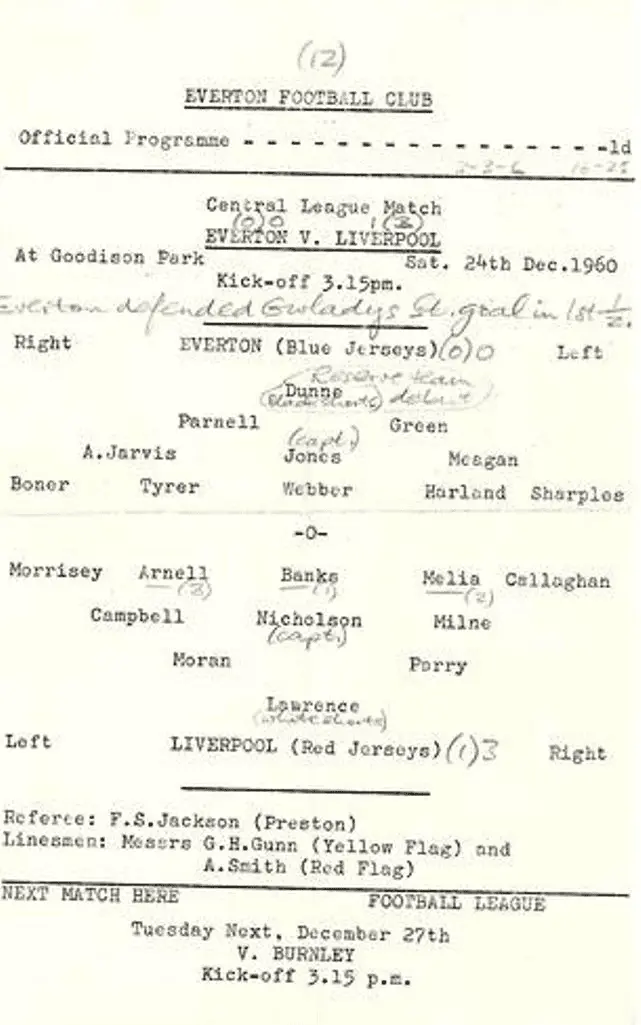 (12)
EVERTON FOOTBALL CLUB
Official Programme - - - - - - - - - - - - - - - - -1d
Central League Match
(0) 0 1 (3)
EVERTON V. LIVERPOOL
At Goodison Park Sat. 24th Dec.1960
Kick-off 3.15pm.
Everton defended Gwladys St. goal in 1st ½.
Right EVERTON (Blue Jerseys) (0) 0 Left
(Reserve team
Dunne
debut)
Parnell Green
(capt.)
A.Jarvis Jones Meagan
Boner Tyrer Webber Harland Sharples
-0-
Morrisey Arnell Banks Melia Callaghan
(3) (1) (2)
Campbell Nicholson Milne
(capt.)
Moran Parry
Lawrence
(white shorts)
Left LIVERPOOL (Red Jerseys) (1) 3 Right
Referee: F.S.Jackson (Preston)
Linesmen: Messrs G.H.Gunn (Yellow Flag) and
A.Smith (Red Flag)
NEXT MATCH HERE FOOTBALL LEAGUE
Tuesday Next, December 27th
V. BURNLEY
Kick-off 3.15 p.m.